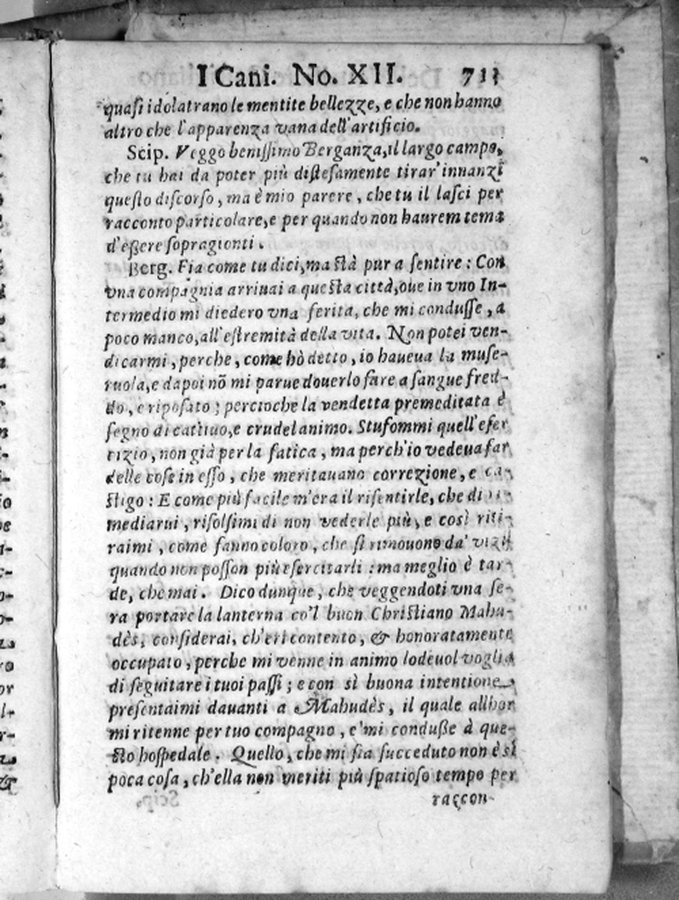 I Cani. No. XII. 711
quasi idolatrano le mentite bellezze, e che non hanno
altro che l'apparenza vana dell'artificio.
Scip. Veggo benissimo Berganza, il largo campo,
che tu hai da poter più distesamente tirar'innanzi
questo discorso, ma è mio parere, che tu il lasci per
racconto particolare, e per quando non haurem tema
d'essere sopragionti.
Berg. Fia come tu dici, ma stà pur a sentire: Con
vna compagnia arriuai a questa città, oue in vno In-
termedio mi diedero vna ferita, che mi condusse, a
poco manco, all'estremità della vita. Non potei ven-
dicarmi, perche, come hò detto, io haueua la muse-
ruola, e dapoi nõ mi parue douerlo fare a sangue fred-
do, e riposato; percioche la vendetta premeditata è
segno di cattiuo, e crudel animo. Stufommi quell'eser
tizio, non già per la fatica, ma perch'io vedeua far
delle cose in esso, che meritauano correzione, e ca-
stigo: E come più facile m'era il risentirle, che di ri-
mediarui, risolsimi di non vederle più, e così riti-
raimi, come fanno coloro, che si rimouono da' vizii
quando non posson più esercitarli: ma meglio è tar-
de, che mai. Dico dunque, che veggendoti vna se-
ra portare la lanterna co'l buon Christiano Mahu-
dès, considerai, ch'eri contento, & honoratamente
occupato, perche mi venne in animo lodeuol voglia
di seguitare i tuoi passi; e con sì buona intentione
presentaimi dauanti a Mahudès, il quale allhor
mi ritenne per tuo compagno, e'mi condusse à que-
sto hospedale. Quello, che mi sia succeduto non è sì
poca cosa, ch'ella non meriti più spatioso tempo per
raccon-